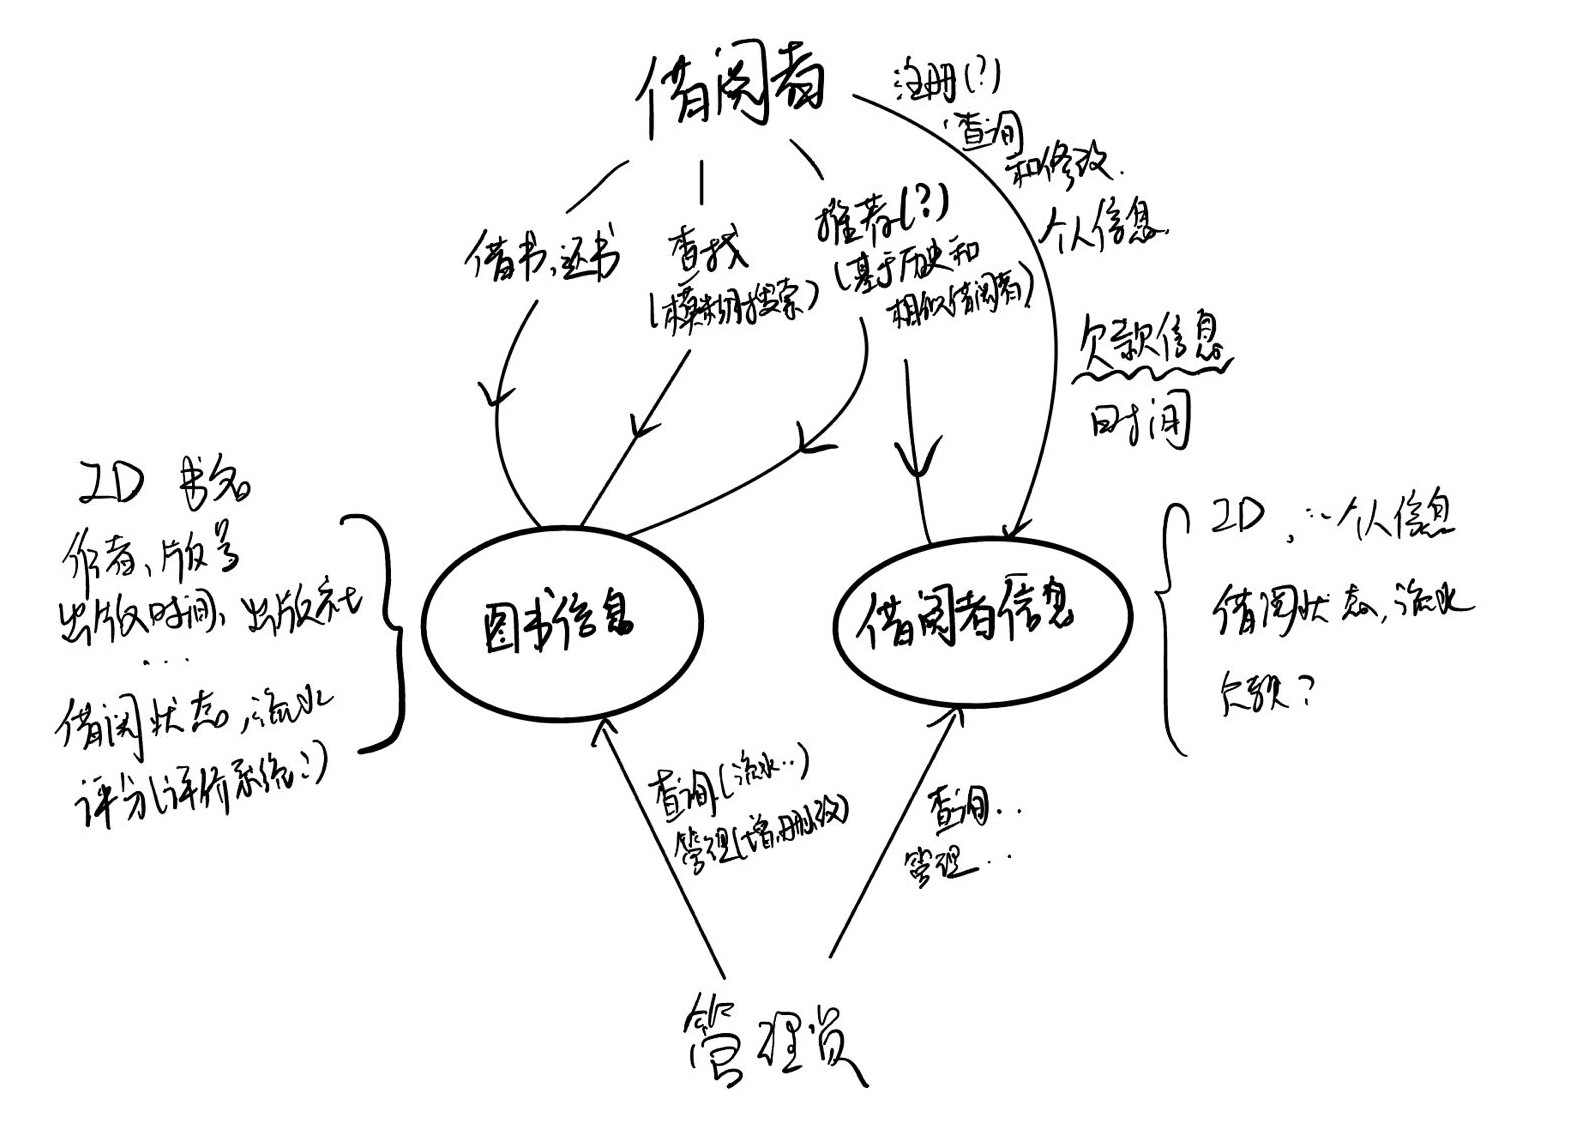 借阅者
注册(?)
查询
和修改.
个人信息.
借书,还书
查找
(模糊搜索)
推荐(?)
(基于历史和
相似借阅者)
欠款信息
时间
ID 书名
作者、版号
出版时间, 出版社
...
借阅状态,流水
评分(评价系统?)
图书信息
借阅者信息
ID, ..个人信息
借阅状态,流水
欠款?
查询(流水..)
管理(增,删,改)
查询..
管理..
管理员